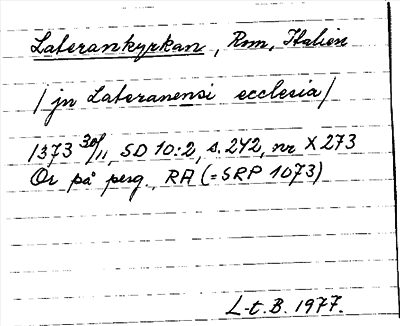 Laterankyrkan, Rom, Italien
/jn Lateranensi ecclesia/
1373 30/11, SD 10:2, s. 242, nr X273
Or på perg., RA (=SRP 1073)
L-t. B. 1977.